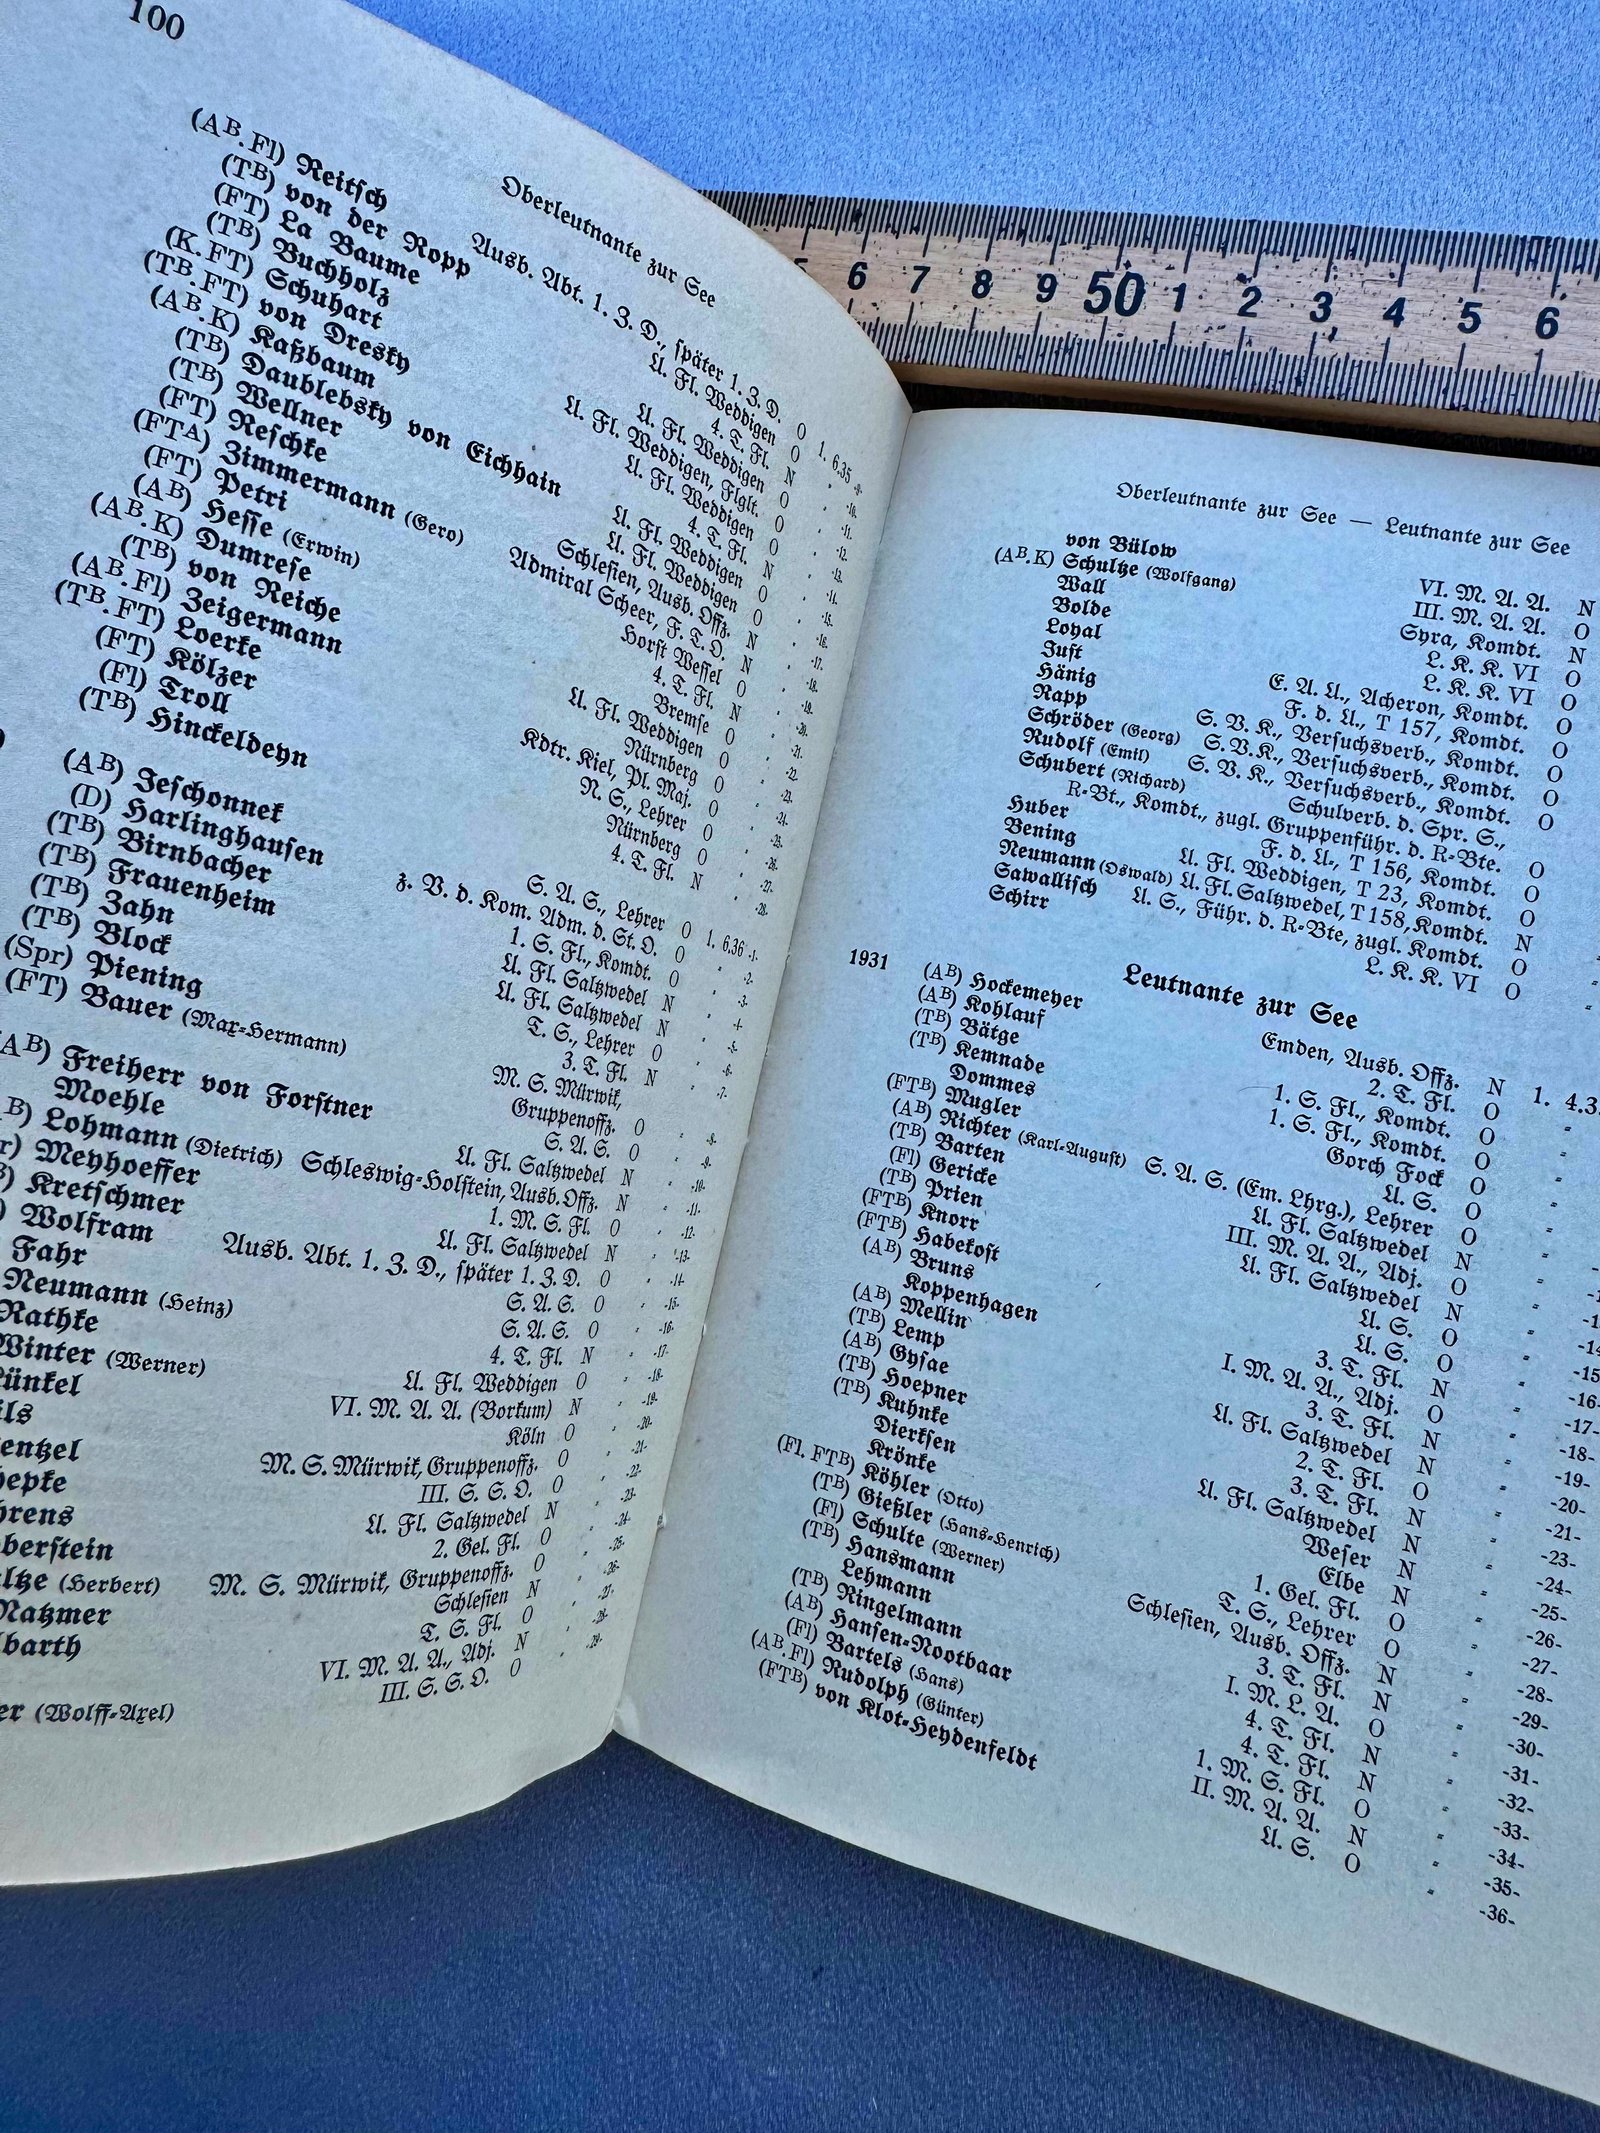 100
Oberleutnante zur See
(AB.Fl) Reitsch Ausb. Abt. 1. Z. D., später 1. Z. D. O 1. 6.35 -9-
(TB) von der Ropp U. Fl. Weddigen O " -10-
(FT) La Baume 4. T. Fl. N " -11-
(TB) Buchholz U. Fl. Weddigen O " -12-
(K.FT) Schuhart U. Fl. Weddigen, Flglt. O " -13-
(TB.FT) von Dresky U. Fl. Weddigen O " -14-
(AB.K) Kaßbaum 4. T. Fl. N " -15-
(TB) Daublebsky von Eichhain U. Fl. Weddigen O " -16-
(TB) Wellner U. Fl. Weddigen O " -17-
(FT) Reschke Schlesien, Ausb. Offz. N " -18-
(FTA) Zimmermann (Gero) Admiral Scheer, F. T. O. N " -19-
(FT) Petri Horst Wessel O " -20-
(AB) Hesse (Erwin) 4. T. Fl. N " -21-
(AB.K) Dumrese Bremse O " -22-
(TB) von Reiche U. Fl. Weddigen O " -23-
(AB.Fl) Zeigermann Nürnberg O " -24-
(TB.FT) Loerke Kdtr. Kiel, Pl. Maj. O " -25-
(FT) Kölzer N. S., Lehrer O " -26-
(Fl) Troll Nürnberg O " -27-
(TB) Hinckeldeyn 4. T. Fl. N " -28-
(AB) Jeschonnek S. A. S., Lehrer O 1. 6.36 -1-
(D) Harlinghausen z. V. d. Kom. Adm. d. St. O. O " -2-
(TB) Birnbacher 1. S. Fl., Komdt. O " -3-
(TB) Frauenheim U. Fl. Saltzwedel N " -4-
(TB) Zahn U. Fl. Saltzwedel N " -5-
(TB) Block T. S., Lehrer O " -6-
(Spr) Piening 3. T. Fl. N " -7-
(FT) Bauer (Max-Hermann) M. S. Mürwik,
Gruppenoffz. O " -8-
(AB) Freiherr von Forstner S. A. S. O " -9-
Moehle U. Fl. Saltzwedel N " -10-
B) Lohmann (Dietrich) Schleswig-Holstein, Ausb. Offz. N " -11-
r) Meyhoeffer 1. M. S. Fl. O " -12-
B) Kretschmer U. Fl. Saltzwedel N " -13-
) Wolfram Ausb. Abt. 1. Z. D., später 1. Z. D. O " -14-
Fahr S. A. S. O " -15-
Neumann (Heinz) S. A. S. O " -16-
Rathke 4. T. Fl. N " -17-
Winter (Werner) U. Fl. Weddigen O " -18-
ünkel VI. M. A. A. (Borkum) N " -19-
ils Köln O " -20-
entzel M. S. Mürwik, Gruppenoffz. O " -21-
oepke III. S. S. O. O " -22-
hrens U. Fl. Saltzwedel N " -23-
berstein 2. Gel. Fl. O " -24-
ltze (Herbert) M. S. Mürwik, Gruppenoffz. O " -25-
Natzmer Schlesien N " -26-
lbarth T. S. Fl. O " -27-
VI. M. A. A., Adj. N " -28-
er (Wolff-Axel) III. S. S. O. O " -29-
Oberleutnante zur See — Leutnante zur See
von Bülow VI. M. A. A. N
(AB.K) Schultze (Wolfgang) III. M. A. A. O
Wall Syra, Komdt. N
Bolde L. K. K. VI O
Loyal L. K. K. VI O
Just E. A. U., Acheron, Komdt. O
Hänig F. d. U., T 157, Komdt. O
Rapp S. V. K., Versuchsverb., Komdt. O
Schröder (Georg) S. V. K., Versuchsverb., Komdt. O
Rudolf (Emil) S. V. K., Versuchsverb., Komdt. O
Schubert (Richard) Schulverb. d. Spr. S.,
R-Bt., Komdt., zugl. Gruppenführ. d. R-Bte. O
Huber F. d. U., T 156, Komdt. O
Bening U. Fl. Weddigen, T 23, Komdt. O
Neumann (Oswald) U. Fl. Saltzwedel, T 158, Komdt. N
Sawallisch U. S., Führ. d. R-Bte, zugl. Komdt. O
Schirr L. K. K. VI O
Leutnante zur See
1931 (AB) Hockemeyer Emden, Ausb. Offz. N 1. 4.3
(AB) Kohlauf 2. T. Fl. O "
(TB) Bätge 1. S. Fl., Komdt. O "
(TB) Kemnade 1. S. Fl., Komdt. O "
Dommes Gorch Fock O "
(FTB) Mugler U. S. O "
(AB) Richter (Karl-August) S. A. S. (Em. Lhrg.), Lehrer O "
(TB) Barten U. Fl. Saltzwedel N "
(Fl) Gericke III. M. A. A., Adj. O "
(TB) Prien U. Fl. Saltzwedel N " -14
(FTB) Knorr U. S. O " -15
(FTB) Habekost U. S. O " -16-
(AB) Bruns 3. T. Fl. N " -17-
Koppenhagen I. M. A. A., Adj. O " -18-
(AB) Mellin 3. T. Fl. N " -19-
(TB) Lemp U. Fl. Saltzwedel N " -20-
(AB) Gysae 2. T. Fl. O " -21-
(TB) Hoepner 3. T. Fl. N " -23-
(TB) Kuhnke U. Fl. Saltzwedel N " -24-
Dierksen Weser N " -25-
Krönke Elbe N " -26-
(Fl. FTB) Köhler (Otto) 1. Gel. Fl. O " -27-
(TB) Gießler (Hans-Henrich) T. S., Lehrer O " -28-
(Fl) Schulte (Werner) Schlesien, Ausb. Offz. N " -29-
(TB) Hansmann 3. T. Fl. N " -30-
Lehmann I. M. L. A. O " -31-
(TB) Ringelmann 4. T. Fl. N " -32-
(AB) Hansen-Nootbaar 4. T. Fl. N " -33-
(Fl) Bartels (Hans) 1. M. S. Fl. O " -34-
(AB.Fl) Rudolph (Günter) II. M. A. A. N " -35-
(FTB) von Klot-Heydenfeldt U. S. O " -36-
6 7 8 9 50 1 2 3 4 5 6